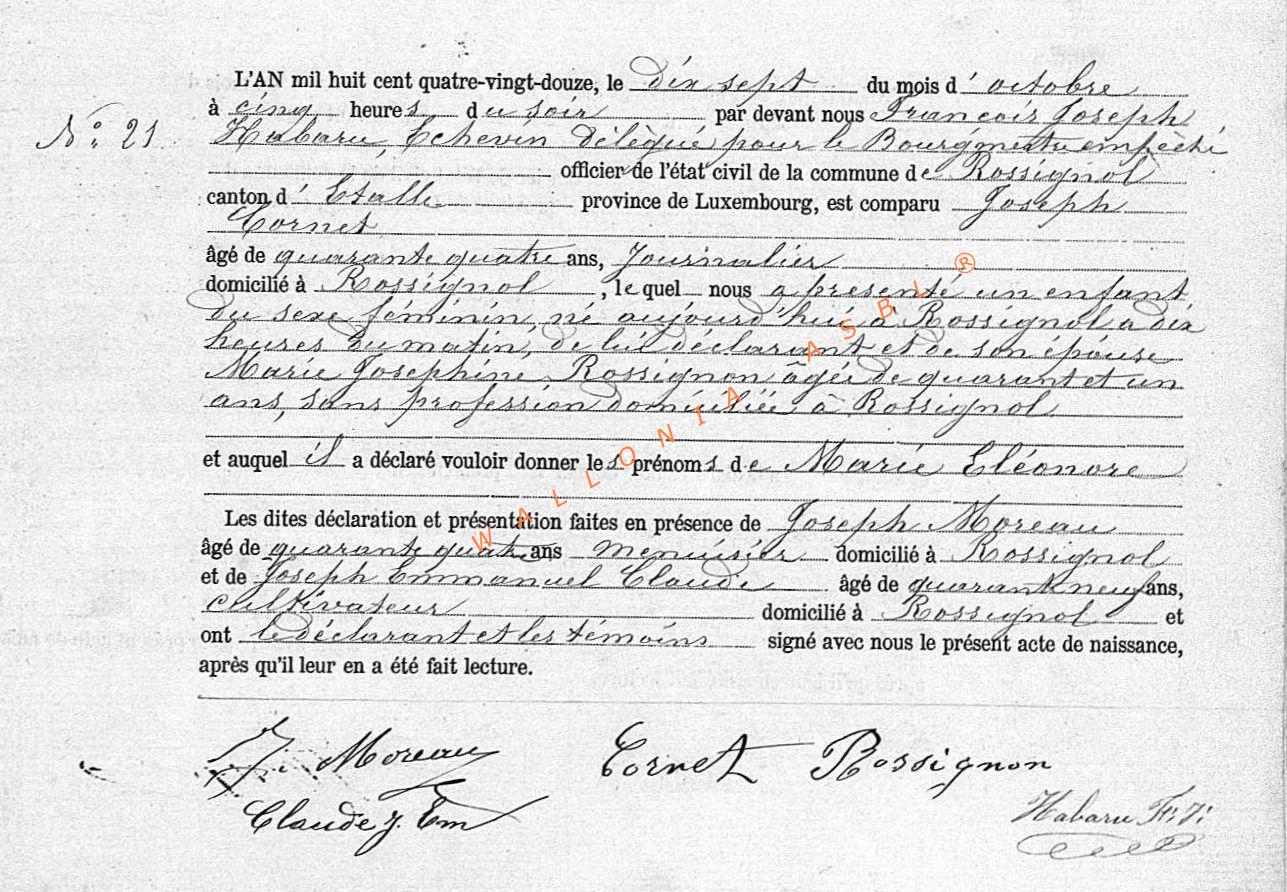 L'AN mil huit cent quatre-vingt-douze, le dix sept du mois d' octobre
à cinq heures du soir par devant nous François Joseph
N° 21 Habaru, Echevin délégué pour le Bourgmestre empêché
officier de l'état civil de la commune de Rossignol
canton d' Etalle province de Luxembourg, est comparu Joseph
Cornet
âgé de quarante quatre ans, Journalier
domicilié à Rossignol, lequel nous a présenté un enfant
du sexe féminin, né aujourd'hui à Rossignol à dix
heures du matin, de lui déclarant et de son épouse
Marie Joséphine Rossignon âgée de quarant et un
ans, sans profession domiciliée à Rossignol
et auquel il a déclaré vouloir donner les prénoms de Marie Eléonore
Les dites déclaration et présentation faites en présence de Joseph Moreau
âgé de quarante quatre ans menuisier domicilié à Rossignol
et de Joseph Emmanuel Claude âgé de quarante neuf ans,
cultivateur domicilié à Rossignol et
ont le déclarant et les témoins signé avec nous le présent acte de naissance,
après qu'il leur en a été fait lecture.
J. Moreau Cornet Rossignon
Claude J. Em Habaru Fr: J:
WALLONIA ASBL ®